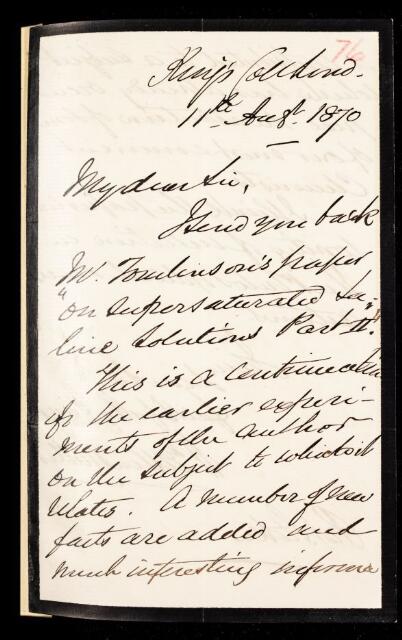 76
King's Coll Lond.
11th Augst. 1870
My dear Sir,
I send you back
Mr. Tomlinson's paper
"on supersaturated Sa-
line Solutions Part II."
This is a continuation
of the earlier experi-
ments of the author
on the subject to which it
relates. A number of new
facts are added and
much interesting informa